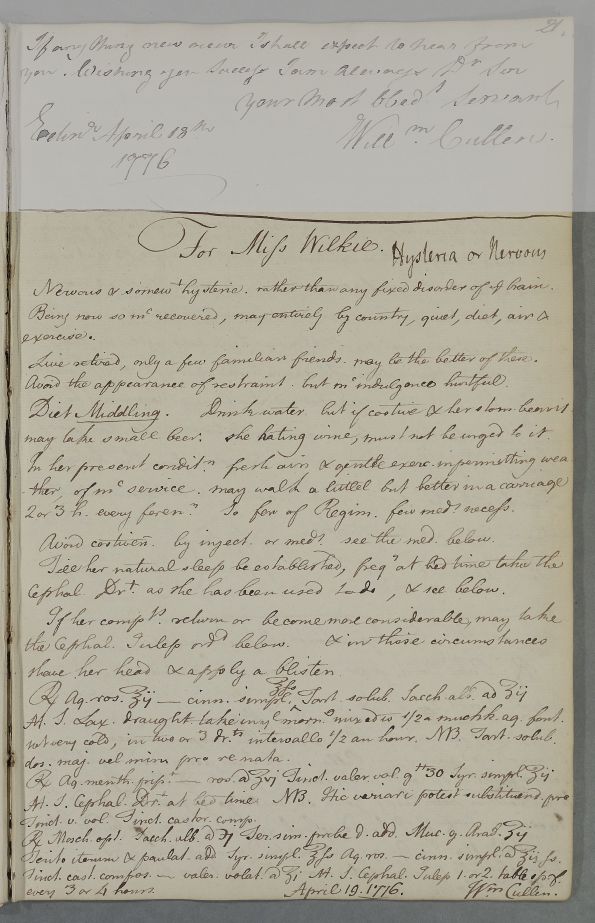 21.
If any thing new occur I shall expect to hear from
you. Wishing you Success I am always Dr Sir
your Most Obedt Servant
Edinr April 18th Willm Cullen.
1776
For Miss Wilkie. Hysteria or Nervous
Nervous & somewt hysteric. rather than any fixed disorder of ye brain.
Being now so mh recovered, may entirely by country, quiet, diet, air &
exercise.
Live retired, only a few familiar friends. may be the better of these.
Avoid the appearance of restraint. but mh indulgence hurtful.
Diet Middling. Drink water but if costive & her stom. bear it
may take small beer. she hating wine, must not be urged to it.
In her present conditn fresh air & gentle exerc. in permitting wea
-ther, of mh service. may walk a littel but better in a carriage
2 or 3 h. every foren. So few of Regim. few medt necess.
Avoid costiven. by inject. or medt see the med. below.
Till her natural sleep be established, freqy at bed time take the
Cephal. Drt. as she has been used to do, & see below.
If her compts return or become more considerable, may take
the Cephal. Julep ordd below. & in those circumstances
shave her head & apply a blister.
℞ Aq. ros. ℥ij — cinn. simpl. ℥ſs Tart. solub. Sacch. alb. ad ʒij
M. S. Lax. draught. take in ye morng mixed in 1/2 a mutchk. aq. font.
not very cold, in two or 3 drts intervallo 1/2 an hour. NB. Tart. solub.
dos. may. vel min. pro re nata.
℞ Aq. menth. pip. — ros. a ʒvj Tinct. valer. vol. gtt 30 Syr. simpl. ʒij
M. S. Cephal. Drt. at bed time. NB. Hic variari potest substituend. pro
Tinct. v. vol. Tinct. castor. comp.
℞ Mosch. opt. Sacch. alb. a ʒj Ter. sim. probe d. add. Muc. g. Arab. ʒij
Terito iterum & paulat. add Syr. simpl. ℥ſs Aq. ros. — cinn. simpl. a ℥ijſs.
Tinct. cast. compos. — valer. volat. a ʒj M. S. Cephal. Julep 1. or 2. table spf.
every 3 or 4 hours. April 19. 1776. Wm Cullen.